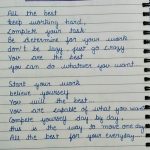 All the best
keep working hard,
Complete your task
Be determine for your work
don't be lazy just go crazy
You are the best
you can do whatever you want

Start your work
believe yourself
You will the best...
You are capable of what you want
Compete yourself day by day,
this is the way to move one day
All the best for your everyday